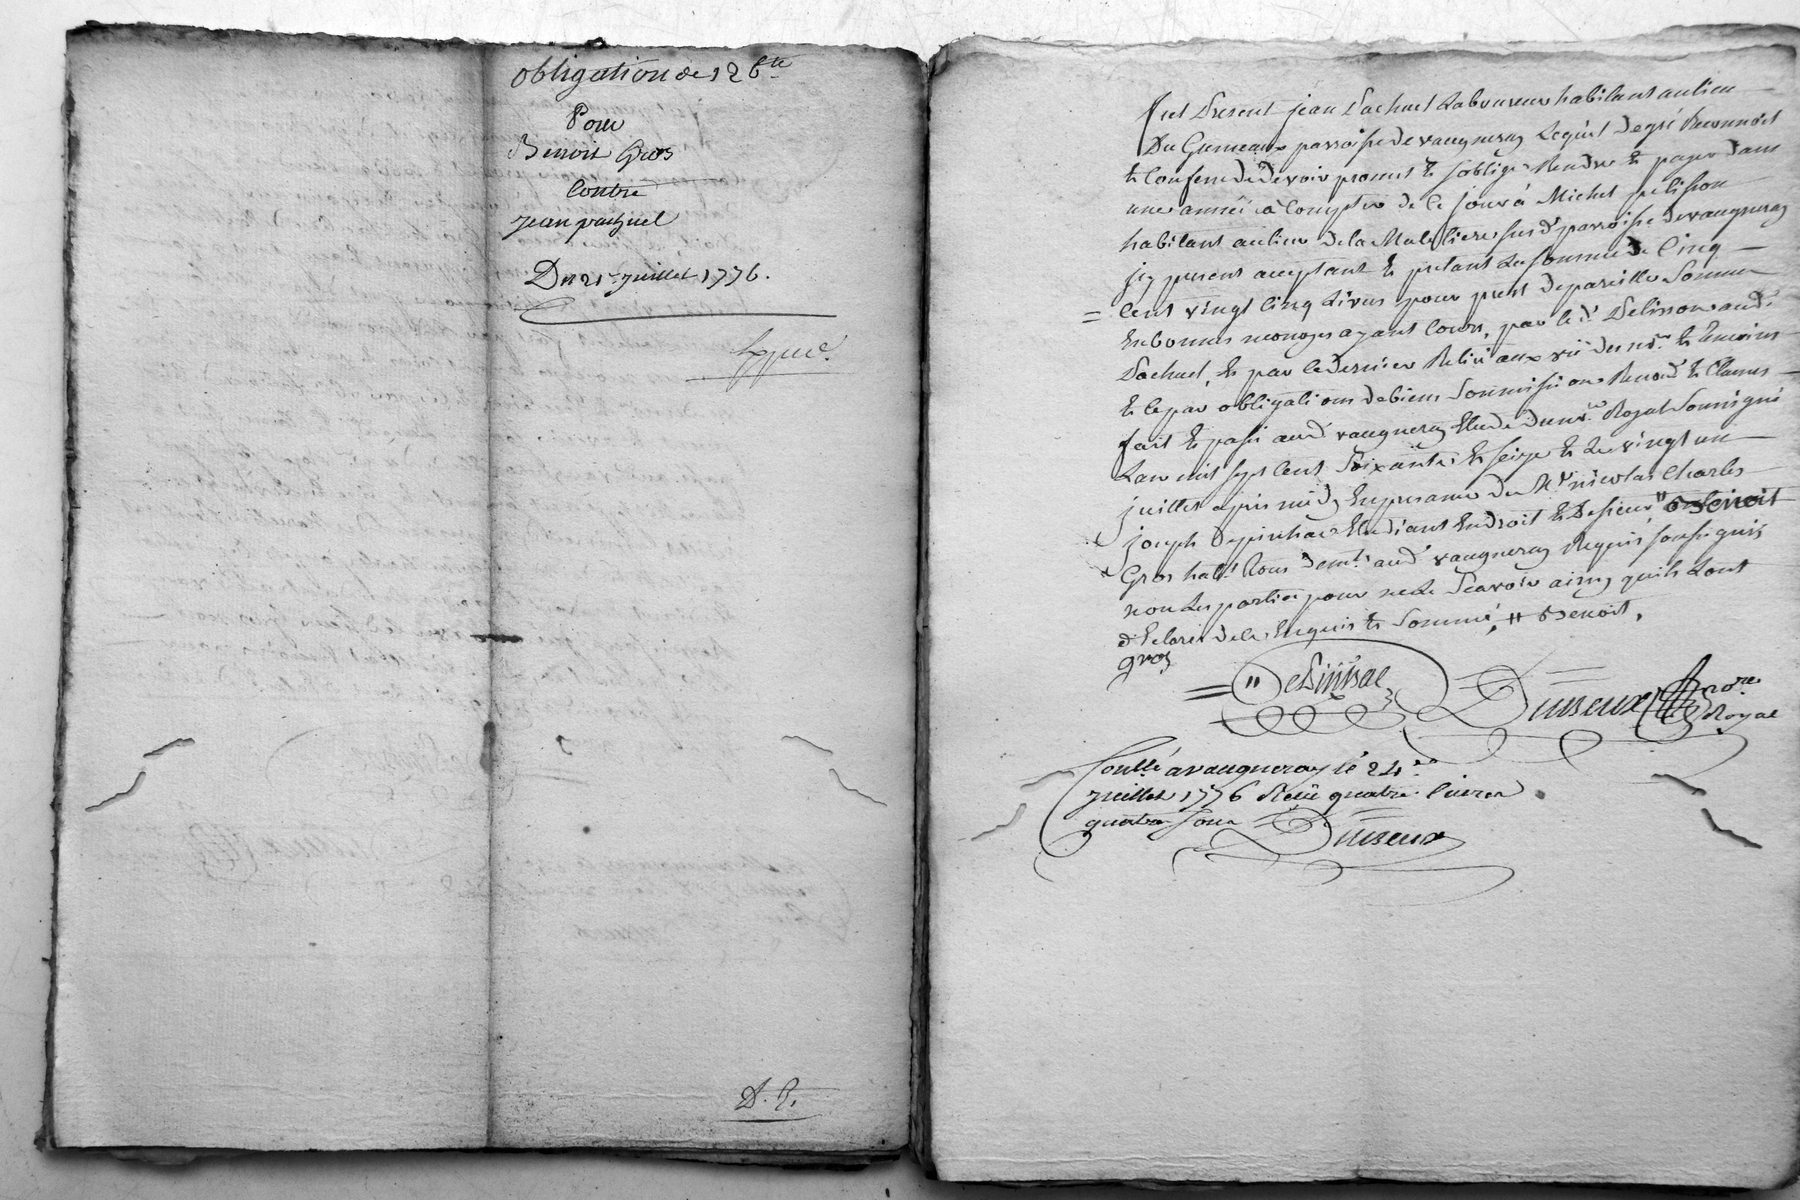 obligation de 126 ₶
Pour
Benoit Gros
Contre
jean pachuel
Du 21e juillet 1776.
Exped.
D. G.
fut Present jean Pachuel Laboureur habitant au lieu
Du Gumeaux parroisse de vaugneray Lequel de gré Reconnoit
et Confesse devoir promet et s'oblige Rendre et payer dans
une année à Compter de Ce jour à Michel pelisson
habitant au lieu de la Maletiere susd. parroisse de vaugneray
jcy present acceptant et pretant La somme de Cinq
Cent vingt Cinq Livres pour prest de pareille Somme
En bonnes monoyes ayant Cours, par le d. Pelisson aud.
Pachuel, Et par Ce dernier Retiré aux vüe du nre. Et temoins
Et Ce par obligations de biens Soumissions Renond. Et Clauses
fait Et passé aud. vaugneray Etude du nre. Royal Soussigné
L'an mil sept Cent Soixante Et seize Et Le vingt un
juillet après midy En presance de Mr. nicolas Charles
joseph Depinhac Etudiant En droit Et de sieur " Benoit
Gros habt. tous deux aud. vaugneray Requis soussignés
non Les parties pour ne Le Scavoir ainsy quils L'ont
déclaré de Ce Enquis Et Sommé, # Benoit,
gros
DePinhac
Duiseux nore.
Royal
Conllé a vaugneray le 24e
juillet 1776 Reçu quatre livres
quatre sous
Duiseux